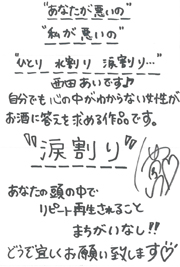 "あなたが悪いの"
"私が悪いの"
"ひとり 水割り 涙割り…"
西田あいです♪
自分でも心の中がわからない女性が
お酒に答えを求める作品です。
"涙割り"
あなたの頭の中で
リピート再生されること
まちがいなし!!
どうぞ宜しくお願い致します♡